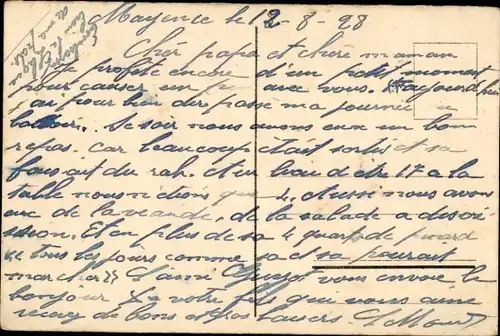 Mayence le 12-8-28
Cher papa et chère maman
Je profite encore d'un petit moment
pour causer un avec vous. aujourd'hui
ai pour bien dire passé ma journée a
. Se soir nous avons eux un bon
repas. Car beaucoup était sortis et sa
fesait du rab. Et au lieu d'etre 17 a la
table nous n'étions que 4, Aussi nous avons
eux de la viande, de la salade a discré
sion. Et en plus de sa 4 quarts de pinard
tous les jours comme sa et sa pourait
marcher L'ami vous envoie le
bonjour votre fils qui vous aime
recevez de bons et gros baisers